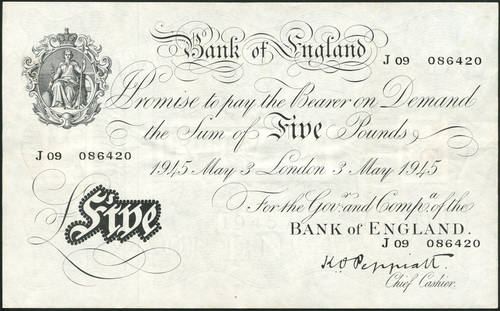 Bank of England
J 09 086420
I Promise to pay the Bearer on Demand
the Sum of Five Pounds
J 09 086420
1945 May 3 London 3 May 1945
£Five
For the Gov.r and Comp.a of the
BANK of ENGLAND.
J 09 086420
K O Peppiatt
Chief Cashier.